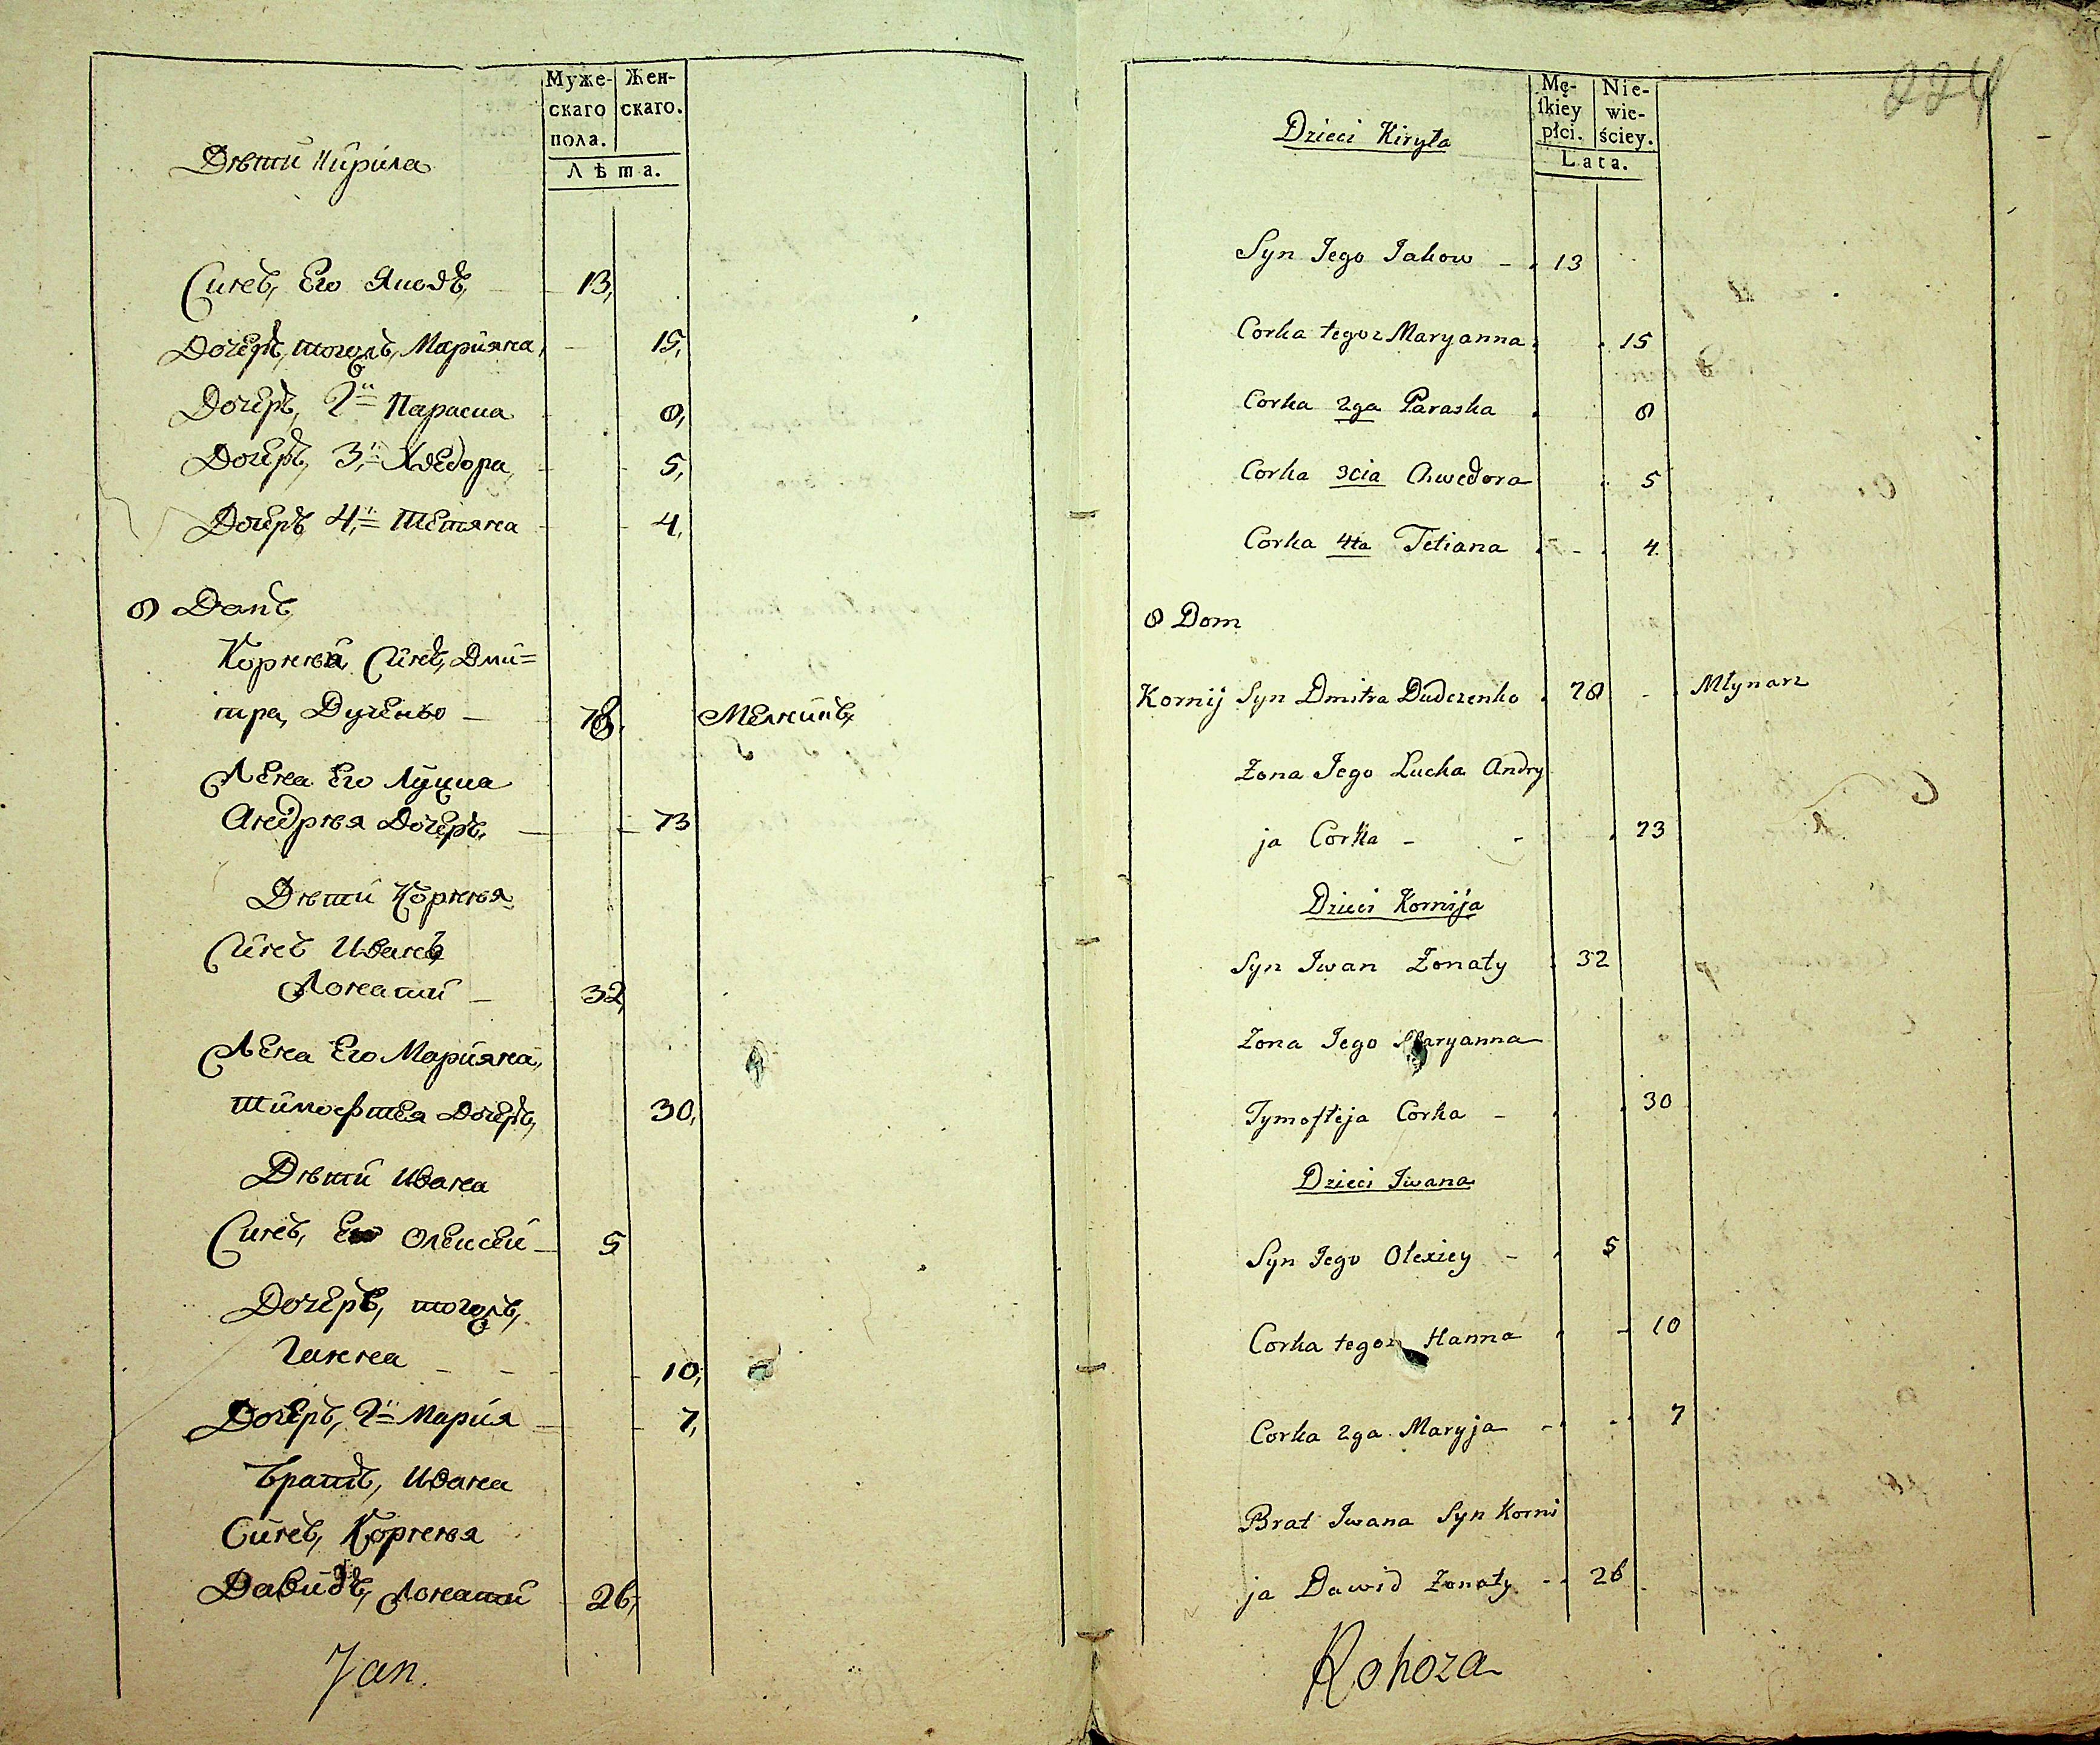 Муже-
скаго
пола.
Жен-
скаго.
Лѣта.
Дѣти Кирила
Синъ, Его Яковъ, 13,
Дочеръ, тогожъ, Марияна, 15,
Дочеръ, 2я Параска 8,
Дочеръ, 3я Хведора, 5,
Дочеръ 4я Тетяна 4,
8 Домъ
Корнѣй Синъ, Дми=
тра, Дученко 78, Мелникъ,
Жена Его Луцка
Андрѣя Дочеръ, 73
Дѣти Корнѣя
Синъ Иванъ
Жонатий 32,
Жена Его Марияна,
Тимофтея Дочеръ, 30,
Дѣти Ивана
Синъ, Его Олексей 5
Дочеръ, тогожъ,
Ганна 10,
Дочеръ, 2я Мария 7,
Братъ, Ивана
Синъ, Корнѣя
Давидъ, Жонатий 26,
Jan.
224
Mę-
ſkiey
płci.
Nie-
wie-
ściey.
Lata.
Dzieci Kiryła
Syn Jego Jakow 13
Corka tegoz Maryanna 15
Corka 2ga Paraska 8
Corka 3cia Chwedora 5
Corka 4ta Tetiana 4
8 Dom
Kornij Syn Dmitra Dudczenko 78 Młynarz
Żona Jego Lucka Andry
ja Corka 73
Dzieci Kornija
Syn Iwan Żonaty 32
Żona Jego Maryanna
Tymofteja Corka 30
Dzieci Iwana
Syn Jego Olexiey 5
Corka tegoz Hanna 10
Corka 2ga Maryja 7
Brat Iwana Syn Korni
ja Dawid Żonaty 26
Rohoza